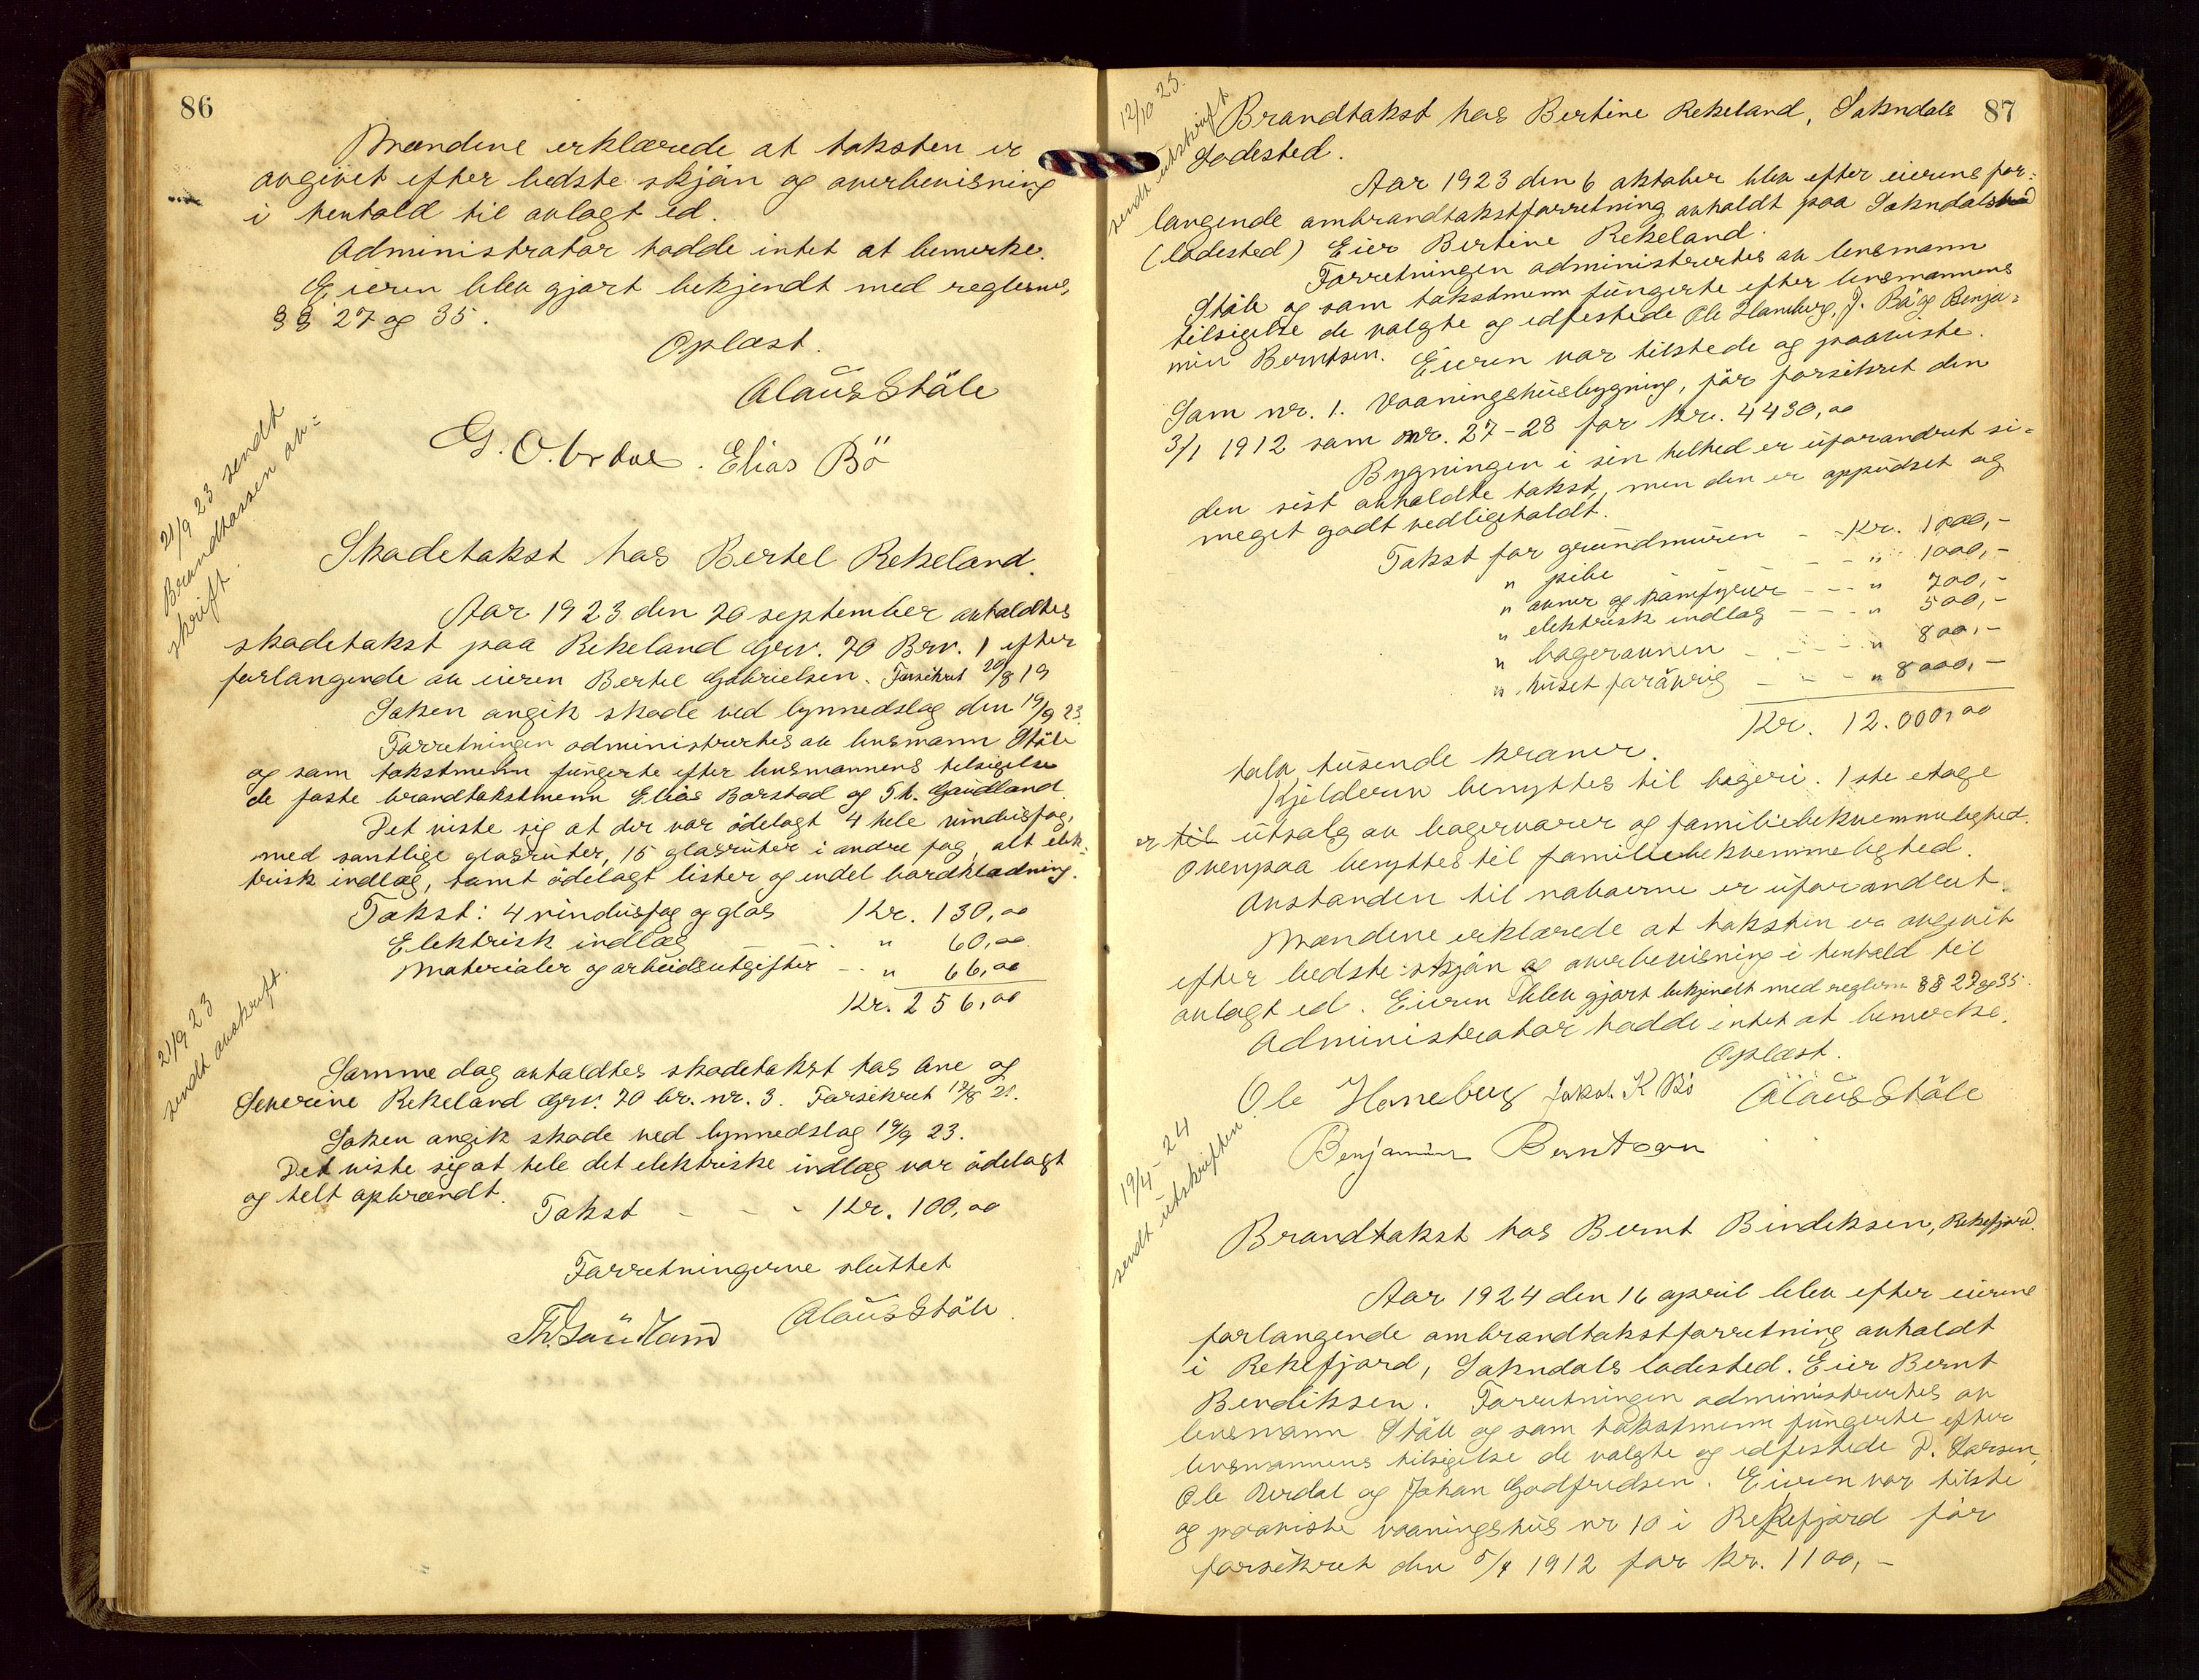 86
Mændene erklærede at taksten er
avgivet efter bedste skjøn og overbevisning
i henhold til avlagt ed.
Administrator hadde intet at bemerke.
Eieren blev gjort bekjendt med reglernes
§§ 27 og 35.
Oplæst.
Claus Ståle
Elias Bö
21/9 23 sendt
Brandkassen av=
skrift.
Skadetakst hos Bertel Rekeland.
Aar 1923 den 20 september avholdtes
skadetakst paa Rekeland Grv. 70 Brv. 1 efter
forlangende av eieren Bertel Gabrielsen. Forsikret 20/8 19
Saken angik skade ved lynnedslag den 19/9 23.
Forretningen administrertes av lensmann Ståle
og som takstmenn fungerte efter lensmannens tilsigelse
de faste brandtakstmenn Elias Barstad og Th. Gaudland.
Det viste sig at der var ödelagt 4 hele vindusfag,
med samtlige glasruter, 15 glasruter i andre fag, alt elek-
trisk indlæg, samt ödelagt lister og endel bordklædning.
Takst: 4 vindusfag og glas Kr. 130,00
Elektrisk indlæg - - " 60,00
Materialer og arbeidsutgifter - - " 66,00
Kr. 256,00
21/9 23
sendt avskrift.
Samme dag avholdtes skadetakst hos Ane og
Severine Rekeland Grv. 70 br. nr. 3. Forsikret 12/8 21.
Saken angik skade ved lynnedslag 19/9 23.
Det viste sig at hele det elektriske indlæg var ödelagt
og helt opbrændt.
Takst - - - Kr. 100,00
Forretningerne sluttet
Th. Gaudland Claus Ståle
87
12/10 23.
sendt utskrift
Brandtakst hos Bertine Rekeland, Sokndals
ladested.
Aar 1923 den 6 oktober blev efter eierens for=
langende ombrandtakstforretning avholdt paa Sokndalstrand
(ladested) Eier Bertine Rekeland.
Forretningen administrertes av lensmann
Ståle og som takstmenn fungerte efter lensmannens
tilsigelse de valgte og edfestede Ole Haneberg, J. Bö og Benja=
min Berntsen. Eieren var tilstede og paaviste.
Som nr. 1. Vaaningshusbygning, för forsikret den
3/1 1912 som nr. 27-28 for Kr. 4430,00
Bygningen i sin helhed er uforandret si=
den sist avholdte takst, men den er oppudset og
meget godt vedligeholdt.
Takst for grundmuren - - Kr. 1000,-
" pibe - - " 1000,-
" ovner og komfyrer - - - " 700,-
" elektrisk indlæg - - - " 500,-
" bagerovnen - - - " 800,-
" huset forövrig - - - " 8000,-
Kr. 12.000,00
tolv tusende kroner.
Kjelderen benyttes til bageri. 1ste etage
er til utsalg av bagervarer og familiebekvemmelighed.
Ovenpaa benyttes til familiebekvemmelighed.
Avstanden til naboerne er uforandret.
Mændene erklærede at taksten er avgivet
efter bedste skjön og overbevisning i henhold til
avlagt ed. Eieren blev gjort bekjendt med reglerne §§ 27 og 35.
Administrator hadde intet at bemerke.
Oplæst.
Ole Haneberg Jakob K Bö Claus Ståle
Benjamin Berntsen
19/4-24
sendt utskriften.
Brandtakst hos Bernt Bendiksen, Rekefjord.
Aar 1924 den 16 april blev efter eierens
forlangende ombrandtakstforretning avholdt
i Rekefjord, Sokndals ladested. Eier Bernt
Bendiksen. Forretningen administrertes av
lensmann Ståle og som takstmenn fungerte efter
lensmannens tilsigelse de valgte og edfestede P. Larsen,
Ole Urdal og Johan Godfredsen. Eieren var tilste
og paaviste vaaningshus nr 10 i Rekefjord för
forsikret den 5/4 1912 for kr. 1100,-